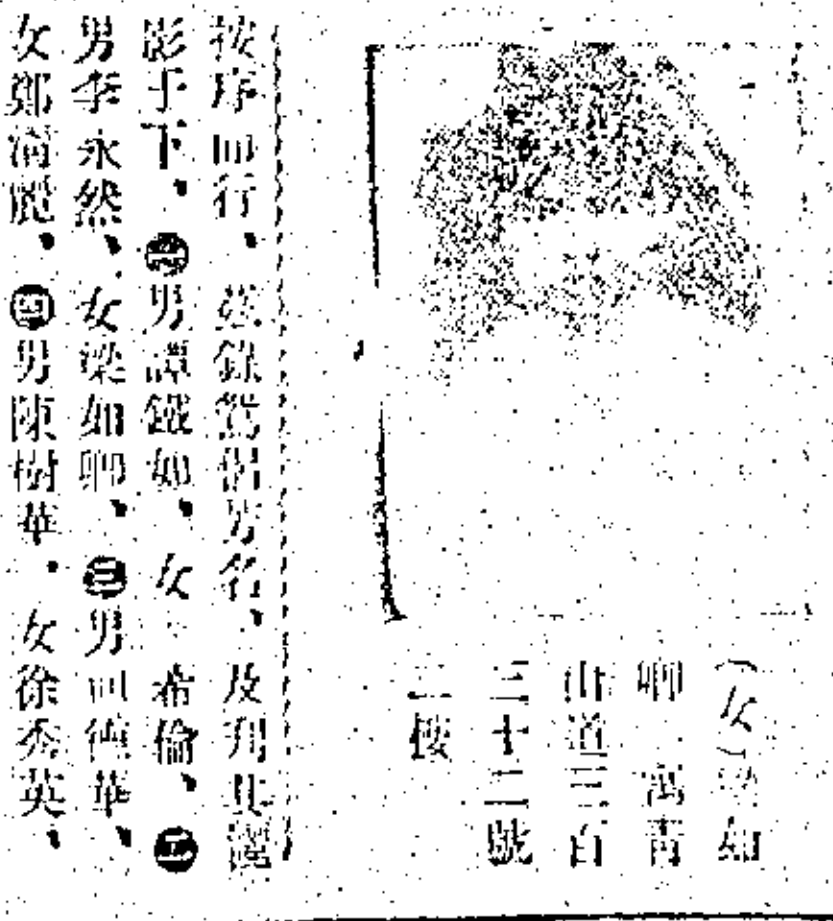 (女)梁如
卿 寓青
山道三百
三十二號
二樓
按序而行、茲錄鴛侶芳名、及刋其儷
影于下、㊀男譚鐵如、女 希倫、㊁
男李永然、女梁如卿、㊂男 德華、
女鄭 麗、㊃男陳樹華、女徐秀英、